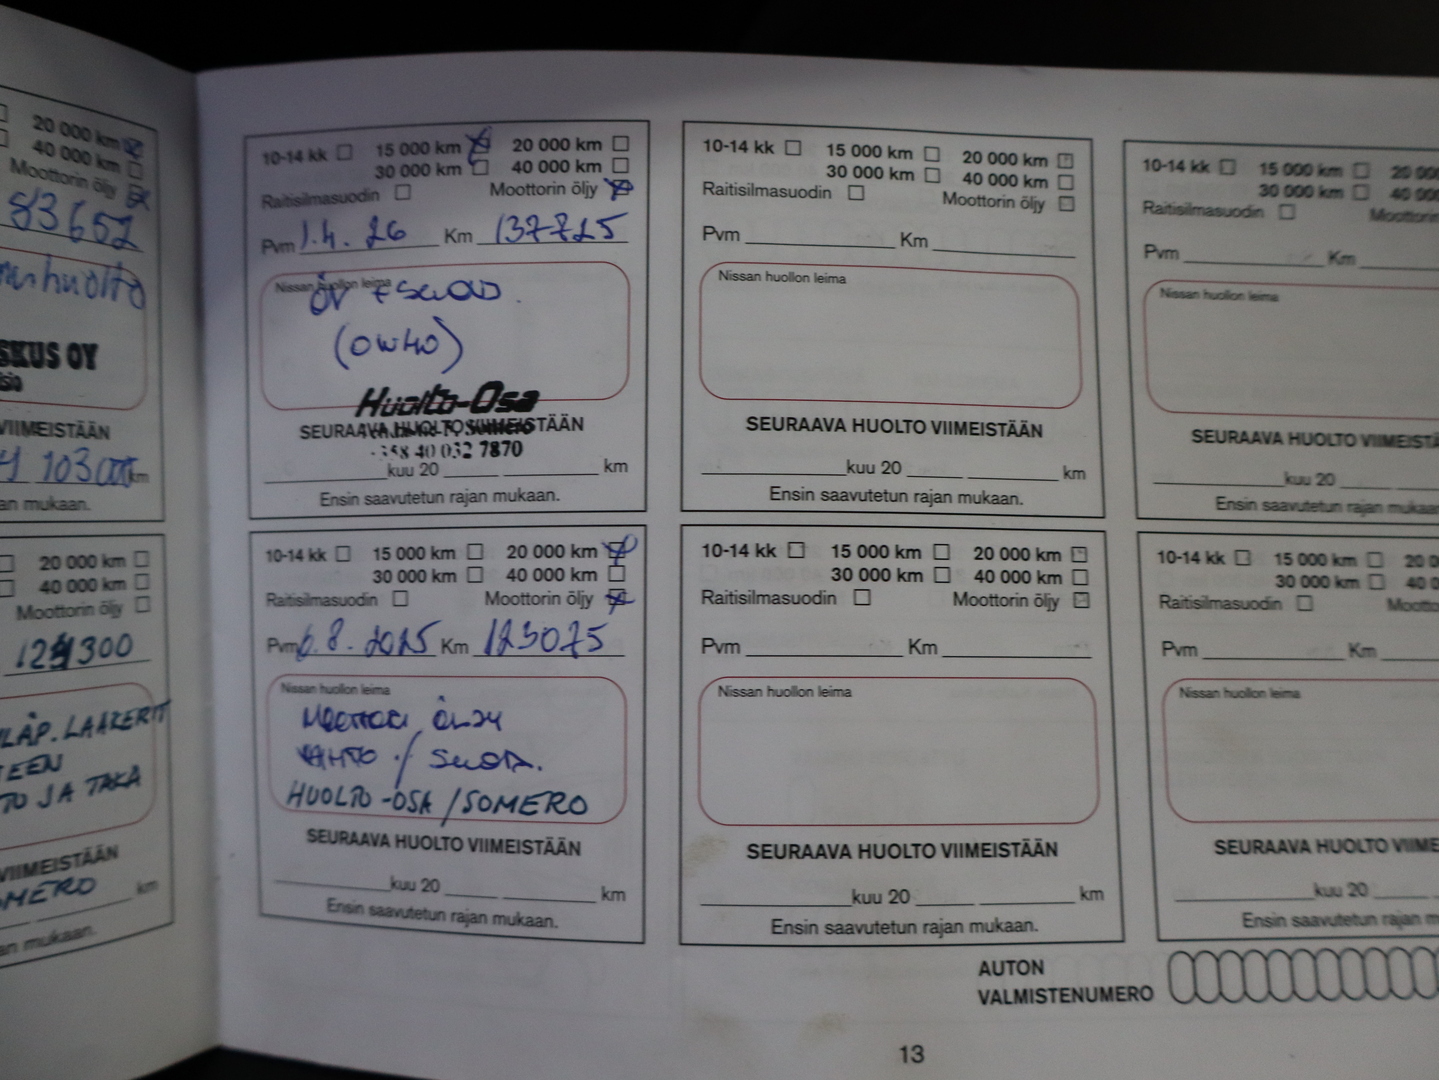 20 000 km
40 000 km
Moottorin öljy
83652
SKUS OY
VIIMEISTÄÄN
103 000 km
an mukaan.
20 000 km
40 000 km
Moottorin öljy
300
LÄP. LAAKERIT
TEEN
TO JA TAKA
VIIMEISTÄÄN
OMERO km
an mukaan.
10-14 kk 15 000 km 20 000 km
30 000 km 40 000 km
Raitisilmasuodin Moottorin öljy
Pvm 1.4.26 Km 137725
Nissan huollon leima
Huolto-Osa
SEURAAVA HUOLTO VIIMEISTÄÄN
358 40 032 7870
kuu 20 km
Ensin saavutetun rajan mukaan.
10-14 kk 15 000 km 20 000 km
30 000 km 40 000 km
Raitisilmasuodin Moottorin öljy
Pvm 6.8.2025 Km 123075
Nissan huollon leima
HUOLTO-OSA / SOMERO
SEURAAVA HUOLTO VIIMEISTÄÄN
kuu 20 km
Ensin saavutetun rajan mukaan.
10-14 kk 15 000 km 20 000 km
30 000 km 40 000 km
Raitisilmasuodin Moottorin öljy
Pvm Km
Nissan huollon leima
SEURAAVA HUOLTO VIIMEISTÄÄN
kuu 20 km
Ensin saavutetun rajan mukaan.
10-14 kk 15 000 km 20 000 km
30 000 km 40 000 km
Raitisilmasuodin Moottorin öljy
Pvm Km
Nissan huollon leima
SEURAAVA HUOLTO VIIMEISTÄÄN
kuu 20 km
Ensin saavutetun rajan mukaan.
10-14 kk 15 000 km 20 00
30 000 km 40 00
Raitisilmasuodin Moottorin
Pvm Km
Nissan huollon leima
SEURAAVA HUOLTO VIIMEISTÄ
kuu 20
Ensin saavutetun rajan mukaan
10-14 kk 15 000 km 20 0
30 000 km 40 0
Raitisilmasuodin Mootto
Pvm Km
Nissan huollon leima
SEURAAVA HUOLTO VIIME
kuu 20
Ensin saavutetun rajan m
AUTON
VALMISTENUMERO
13